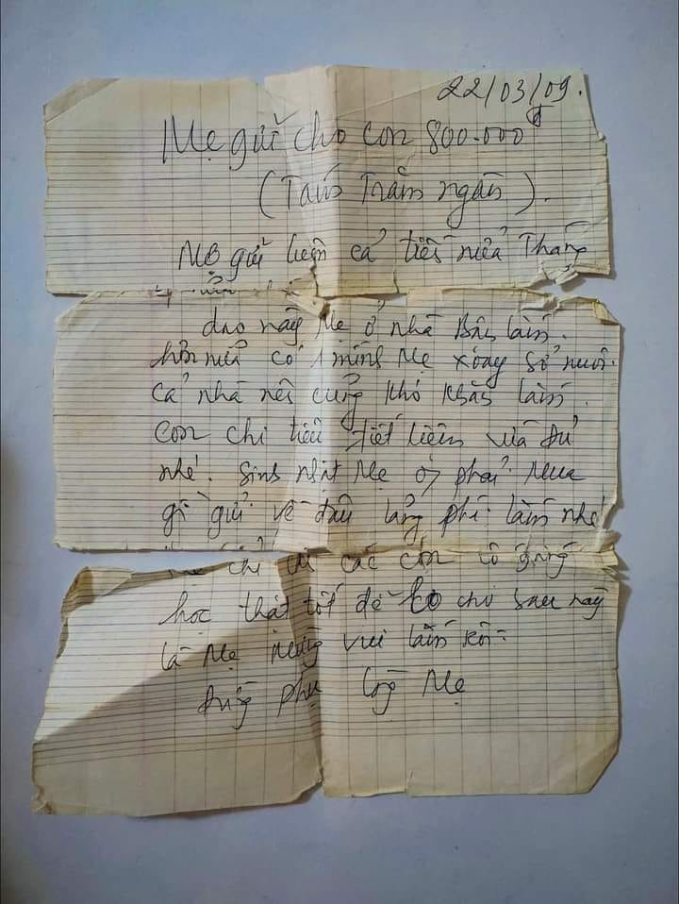 22/03/09.
Mẹ gửi cho con 800.000đ
(Tám Trăm ngàn).
Mẹ gửi luôn cả tiền nửa Tháng
dạo này Mẹ ở nhà lắm.
hơn nữa có 1 mình Mẹ xoay sở nuôi
cả nhà nên cũng khó khăn lắm.
con chi tiêu tiết kiệm vừa đủ
nhé. sinh nhật Mẹ phải mua
gì gửi về đâu lãng phí lắm nhé
chỉ các con cố gắng
học thật tốt để cho sau này
là Mẹ mừng vui lắm rồi
đừng phụ lòng Mẹ